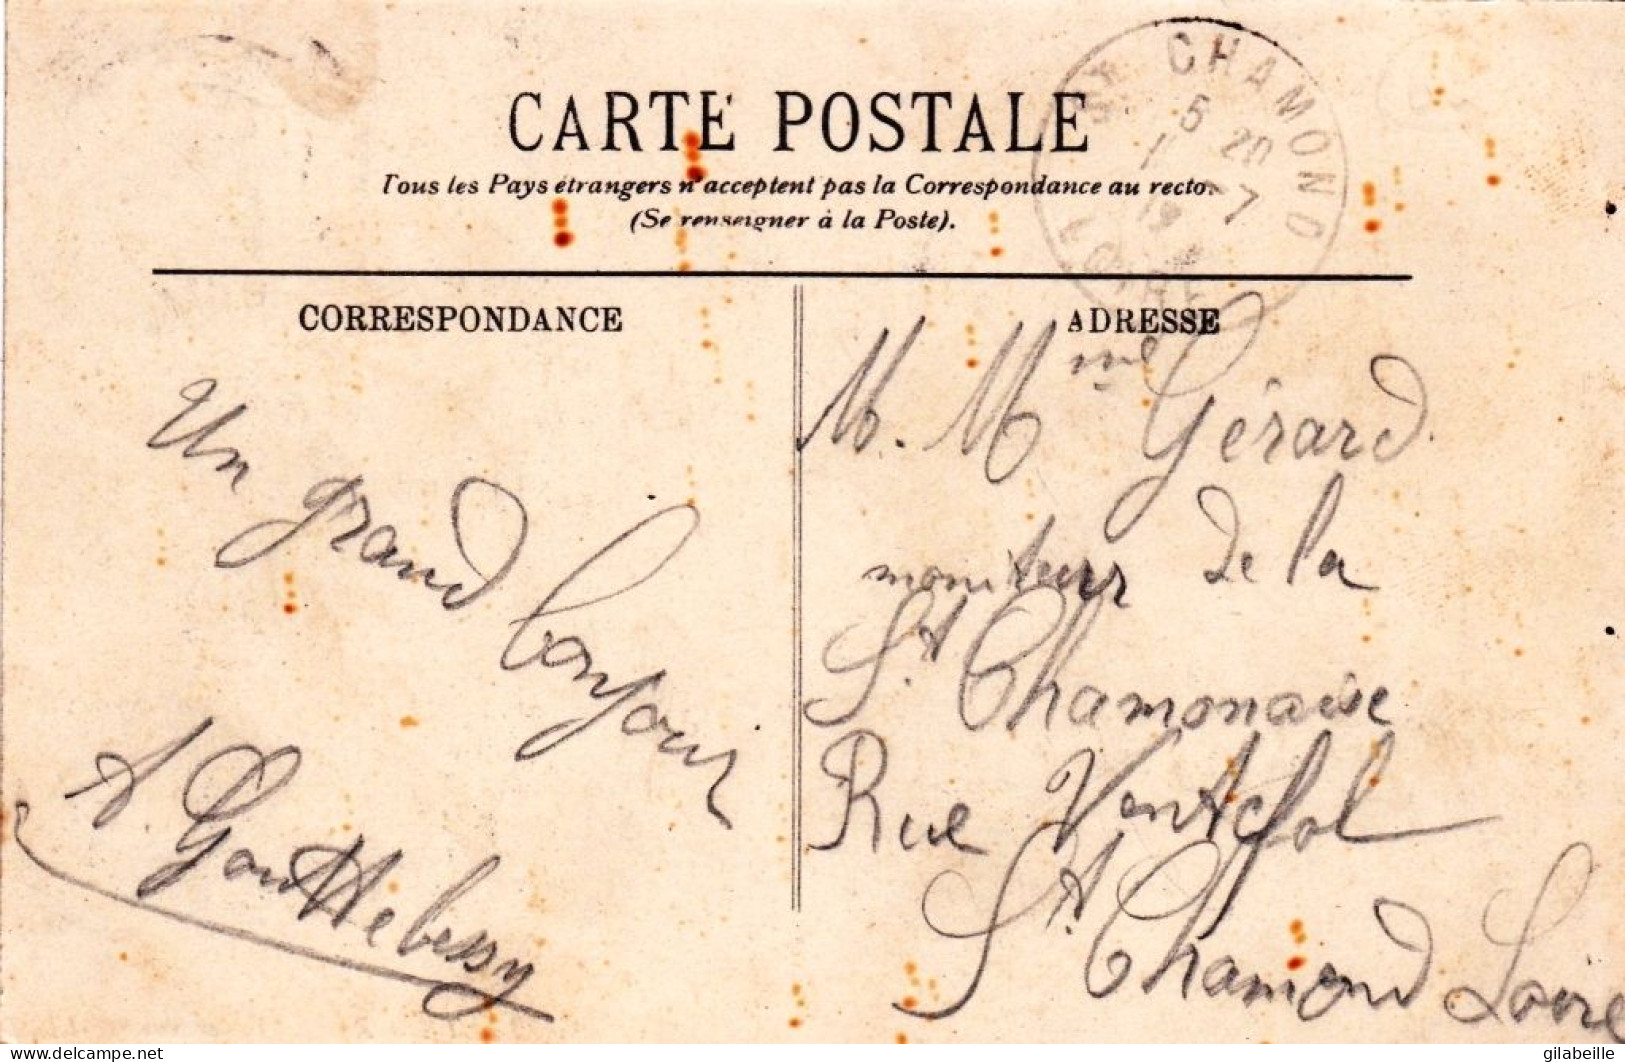 CARTE POSTALE
Tous les Pays étrangers n'acceptent pas la Correspondance au recto.
(Se renseigner à la Poste).
ST CHAMOND
5 20
1 -7
19
LOIRE
CORRESPONDANCE
ADRESSE
Un grand bonjour
A. Gouttebessy
M. Mme Gérard
moniteurs de la
St Chamonaise
Rue Ventefol
St Chamond Loire
delcampe.net
gilabeille